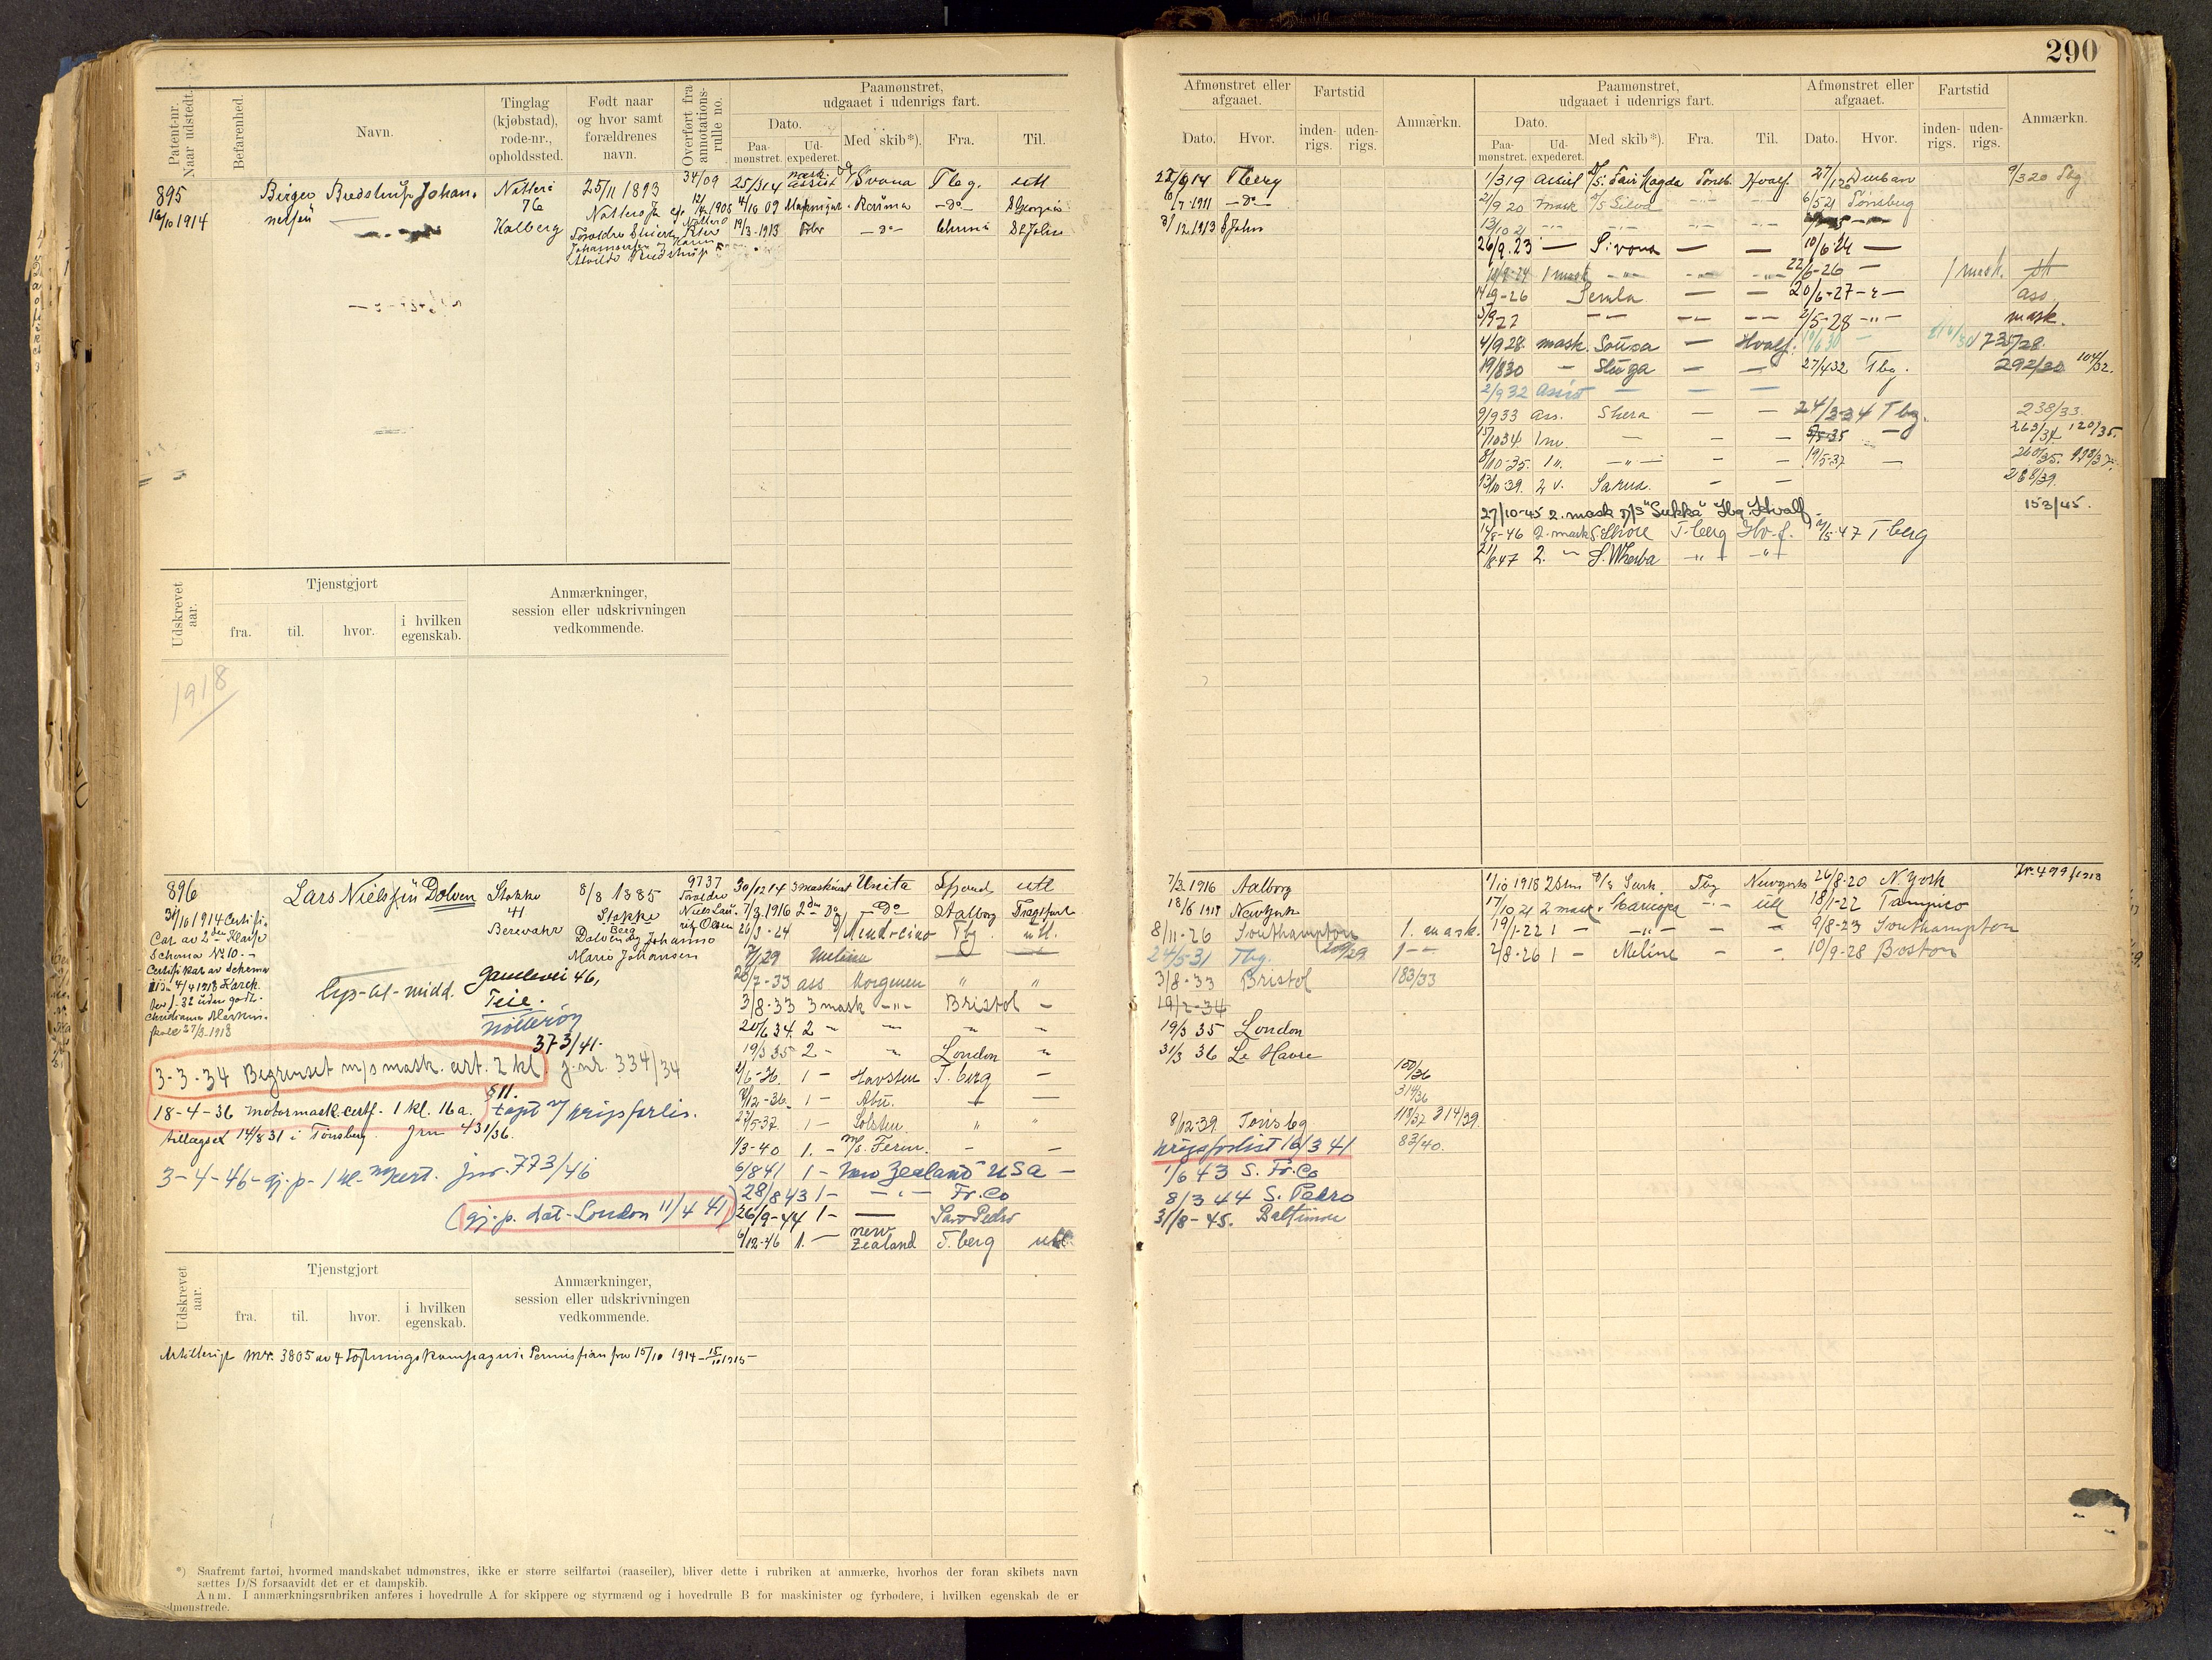 290
Patent-nr. Naar udstedt.
Befarenhed.
Navn.
Tinglag (kjøbstad), rode-nr., opholdssted.
Født naar og hvor samt forældrenes navn.
Overført fra annotations-rulle no.
Paamønstret, udgaaet i udenrigs fart.
Dato.
Paa-mønstret.
Ud-expederet.
Med skib*).
Fra.
Til.
Afmønstret eller afgaaet.
Dato.
Hvor.
Fartstid
inden-rigs.
uden-rigs.
Anmærkn.
Paamønstret, udgaaet i udenrigs fart.
Dato.
Paa-mønstret.
Ud-expederet.
Med skib*).
Fra.
Til.
Afmønstret eller afgaaet.
Dato.
Hvor.
Fartstid
inden-rigs.
uden-rigs.
Anmærkn.
895
16/10 1914
Birger Bredstrup Johan-
nessen
Nøtterø
76
Kalberg
25/11 1893
Nøtterø
34/09
25/3 14 assist Svona Tbg. utl
4/10 09 Raüma -do- S Georgia
19/3-1913 -do- Chra St John
22/9 14 Tberg
/7 1911 -do-
3/12 1913 St John
1/3 19 assist S/S. Fair Magda Tønsb. Hvalf. 27/ 20 Durban 9/3 20 Tbg
2/9 20 mask S/S Silva 6/5 21 Tønsberg
13/10 21
26/9.23 — S:vona — — 10/6 24 —
10/9-24 1 mask 22/6-26 — 1 mask.
14/9-26 Semla — — 20/6-27 ass.
5/9 27 2/5-28 mask.
4/9 28. mask. Sousa — Hvalf. 10/6 30 — 735/28.
19/8 30 - Sluga — — 27/4 32 Tbg. 292/30 104/32.
2/9 32 assist — — —
9/9 33 ass. Shera — — 24/3-34 Tbg. 238/33.
15/10 34 1 mv. — - — 9/5-35 — 263/34. 120/35.
8/10-35. 1 ". —"— - - 19/5-37 — 260/35. 193/37.
13/10 39. 2 v. Sarna. - — 268/39.
27/10-45 2. mask D/S "Sukka" Tbg. Hvalf. 153/45.
14/8-46 2. mask S. Shore T-berg Hv-f. 2/5-47 T-berg
21/8 47 2. " S. Wherba
Udskrevet aar.
Tjenstgjort
fra.
til.
hvor.
i hvilken egenskab.
Anmærkninger, session eller udskrivningen vedkommende.
1918
896
31/10 1914 Certifi-
Cat av 2den Klasse
Schema No 10.-
Certifikat av Schema
Christiania Maskin-
skole 27/3-1918
Lars Nielssen Dolven
Stokke
41
Berevahr
8/8 1885
Stokke
Berg
Dolven og Johanne
Marie Johansen
9737
Foreldre
Niels Lau-
ritz Olsen
Lys-al-midd.
Gamlevei 46,
Teie.
Nøtterøy
373/41.
3-3-34 Begrenset m/s mask. cert. 2 kl j. nr. 334/34
§ 11.
18-4-36 motormask. certf. 1 kl. 16 a. tapt v/ krigsforlis.
tillagset 14/8 31 i Tønsberg. Jnr 431/36.
3-4-46-gj.p-1 kl-mcert. jnr. 773/46
(gj. p. dat-London 11/4 41)
30/12 14 3 maskinist Unita Sfjord utl
7/3.1916 2den Do -Do- Aalborg Fragtfart
26/3-24 Mendocino Tbg. utl.
/7/29 Meline — —
26/7-33 ass Morgenen " "
3/8-33 3 mask -"- Bristol -
20/6 34. 2 " " " "
19/3 35 2 - " London "
2/6-36. 1 - Havsten T.berg -
2/12-36. 1 - Abu. — —
27/5-37. 1 - Solsten. " "
1/3-40 1. - M/S. Fernc. - -
6/8 41 1 - New Zealand USA -
28/8 43 1- -"- Fr. Co
26/9-44 1- — San Pedro
6/12-46 1. - new Zealand T.berg utl
7/3 1916 Aalborg
18/6 1918 NewYork
8/11-26 Southampton 1. mask.
24/5-31 Tbg. 200/29 1 -
3/8-33 Bristol 183/33
19/2-34
19/3 35 London
31/3 36 Le Havre
150/36
314/36
8/12-39. Tønsbg 118/37 314/39.
krigsforlist 16/3 41 83/40.
1/6 43 S. Fr. Co
8/3 44 S. Pedro
31/8-45. Baltimore
1/10 1918 2den S/S Sark. Tbg Newyork 26/8-20 N. York Jr. 479/1918
17/10 21 2 mask Maricopa -"- utl 18/1-22 Tampico
19/1-22 1 - -"- - - 9/8-23 Southampton
2/8-26 1 - Meline - - 10/9-28 Boston
Udskrevet aar.
Tjenstgjort
fra.
til.
hvor.
i hvilken egenskab.
Anmærkninger, session eller udskrivningen vedkommende.
Artillerist nr. 3805 av 4 Fæstningskompagni. Permission fra 15/10 1914 - 15/10 1915-
*) Saafremt fartøi, hvormed mandskabet udmønstres, ikke er større seilfartøi (raaseiler), bliver dette i rubriken at anmærke, hvorhos der foran skibets navn
sættes D/S forsaavidt det er et dampskib.
Anm. I anmærkningsrubriken anføres i hovedrulle A for skippere og styrmænd og i hovedrulle B for maskinister og fyrbødere, i hvilken egenskab de er
udmønstrede.